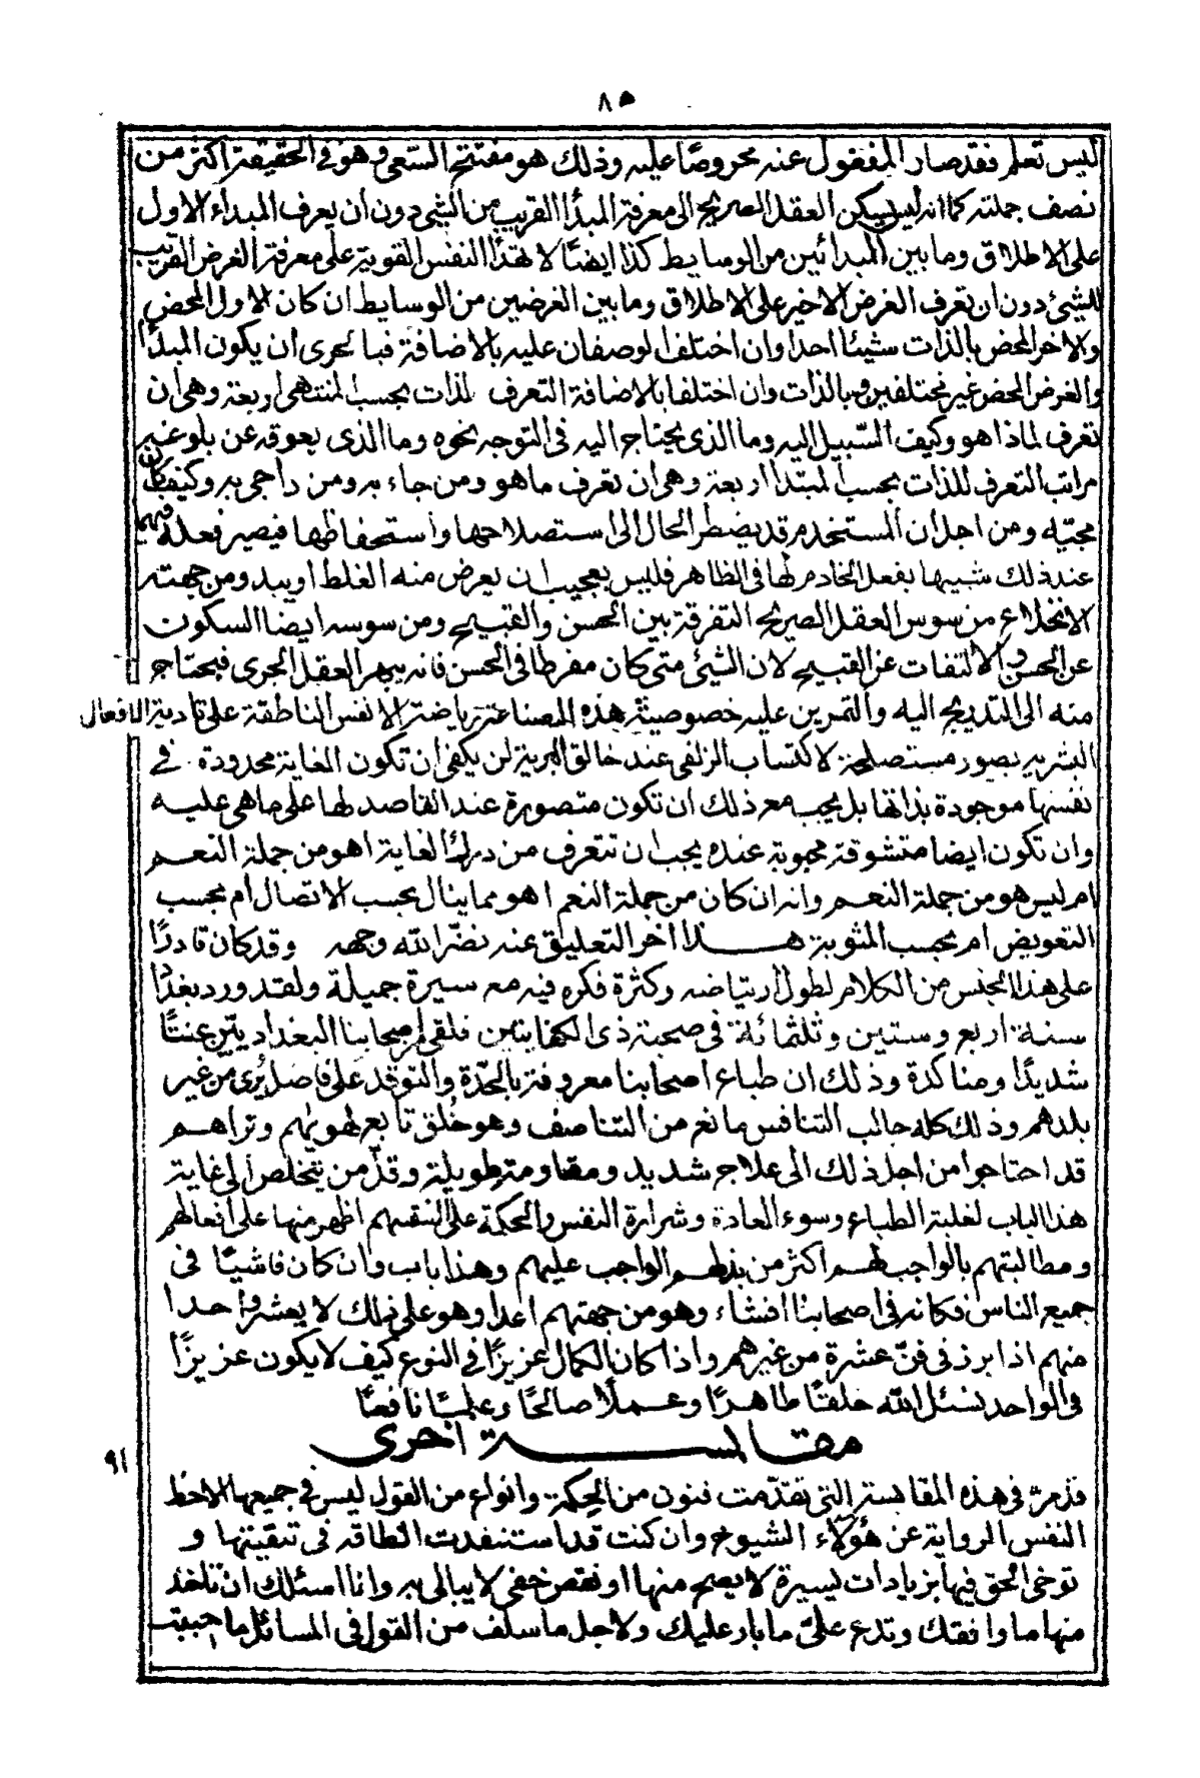 ٨٥
ليس تعلم فقد صار المغفول عنه محروصًا عليه وذلك هو مفتتح السعي وهو في الحقيقة اكثر من
نصف جملته كما انه ليس يمكن العقل الصريح الى معرفة المبدأ القريب من الشئ دون ان يعرف المبداء الاول
على الاطلاق وما بين المبدائين من الوسايط كذا ايضًا لا تهدأ النفس القوية على معرفة الغرض القريب
للشئ دون ان تعرف الغرض الاخير على الاطلاق وما بين الغرضين من الوسايط ان كان الاول المحض
والاخر المحض بالذات شيئا احدا وان اختلف الوصفان عليه بالاضافة فبالحرى ان يكون المبدأ
والغرض المحض غير مختلفين بالذات وان اختلفا بالاضافة التعرف لذات بحسب المنتهى اربعة وهى ان
تعرف لماذا هو وكيف السّبيل اليه وما الذى يحتاج اليه فى التوجه نحوه وما الذى يعوقه عن بلوغه
مراتب التعرف للذات بحسب المبتدا اربعة وهى ان تعرف ما هو ومن جاء به ومن داجى به وكيف كان
مجتيه ومن اجل ان المستخدم قد يضطر الحال الى استصلاحها واستحفاظها فيصير فعله فيهما
عند ذلك شبيها بفعل الخادم لها فى الظاهر فليس بعجيب ان يعرض منه الغلط او يبد ومن جهته
الانخلاع من سوس العقل الصريح التفرقة بين الحسن والقبيح ومن سوسه ايضا السكون
عن الحسن والالتفات عن القبيح لان الشئ متى كان مفرطا فى الحسن فانه يبهر العقل الجرى فيحتاج
منه الى التدريج اليه والتمرين عليه خصوصيّة هذه الصناعة رياضة الانفس الناطقة على تادية الافعال
البشريه بصور مستصلحة لاكتساب الزلفى عند خالق البرية لن يكفى ان تكون الغاية محدودة فى
نفسها موجودة بذاتها بل يجب مع ذلك ان تكون متصورة عند القاصد لها على ما هى عليه
وان تكون ايضا متشوقة محبوبة عنده يجب ان تتعرف من درك الغاية اهو من جملة النعم
ام ليس هو من جملة النعم وانه ان كان من جملة النعم اهو مما ينال بحسب الاتصال أم بحسب
التعويض ام بحسب المثوبة هذا اخر التعليق عنه نضّر الله وجهه وقد كان قادرًا
على هذا الجنس من الكلام لطول ارتياضه وكثرة فكره فيه مع سيرة جميلة ولقد ورد بغداد
سنة اربع وستين وثلثمائة فى صحبة ذى الكفايتين فلقى من اصحابنا البغداديّين عنتًا
شديدًا ومناكدة وذلك ان طباع اصحابنا معروفة بالحدّة والتوقد على فاضل يُرى من غير
بلدهم وذلك كله جالب التنافس مانع من التناصف وهو خُلق تابع لهوبهم وتراهم
قد احتاجوا من اجل ذلك الى علاج شديد ومقاومة طويلة وقلّ من يتخلص الى غاية
هذا الباب لغلبة الطباع وسوء العادة وشرارة النفس والحكمة على السنتهم اظهر منها على افعالهم
ومطالبتهم بالواجب لهم اكثر من بذلهم الواجب عليهم وهذا باب وان كان فاشيًا فى
جميع الناس فكانه فى اصحابنا افشاء وهو من جهتهم اعدا وهو على ذلك لا يعشر واحدا
منهم اذا برز فى فنّ عشرة من غيرهم واذا كان الكمال عزيزًا فى النوع كيف لا يكون عزيزًا
فى الواحد نسئل الله خلقًا طاهرًا وعملًا صالحًا وعلمًا نافعًا
مقابسة اخرى
٩١
قد مرّ فى هذه المقابسة التى تقدّمت فنون من الحكمة وانواع من القول ليس فى جميعها الاحظ
النفس الرواية عن هؤلاء الشيوخ وان كنت قد استنفدت الطاقه فى تنقيتها و
توخى الحق فيها بزيادات يسيرة لا يصح منها او نقص خفى لا يبالى به وانا اسئلك ان تاخذ
منها ما وافقك وتدع علىّ ما بار عليك ولاجل ما سلف من القول فى المسائل ما احببت